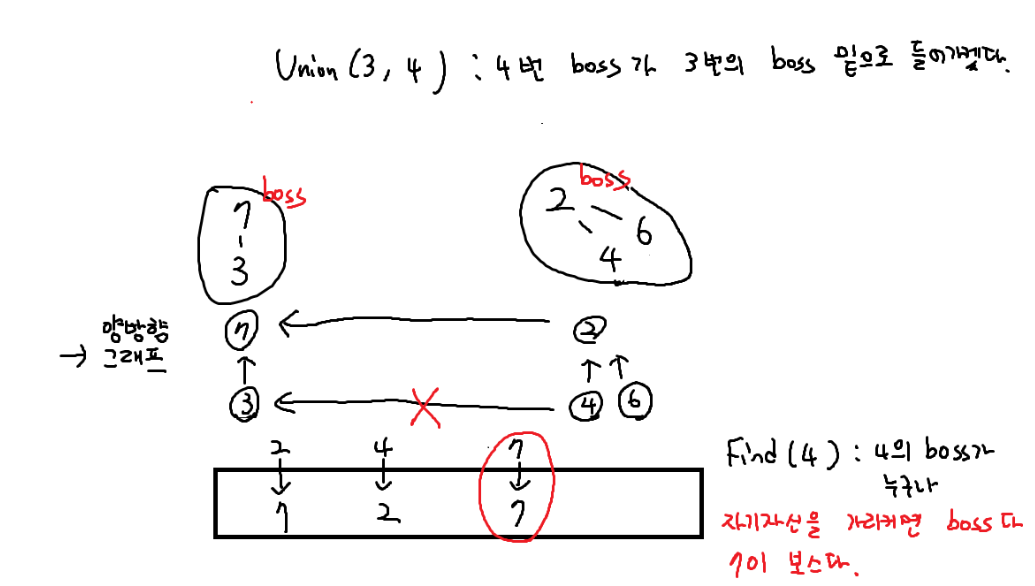 Union(3, 4) : 4번 boss가 3번의 boss 밑으로 들어가겠다.
boss
7
3
boss
2
6
4
양방향
→ 그래프
7
2
3
4
6
2 4 7
7 2 7
Find(4) : 4의 boss가
누구냐
자기자신을 가리키면 boss다
7이 보스다.